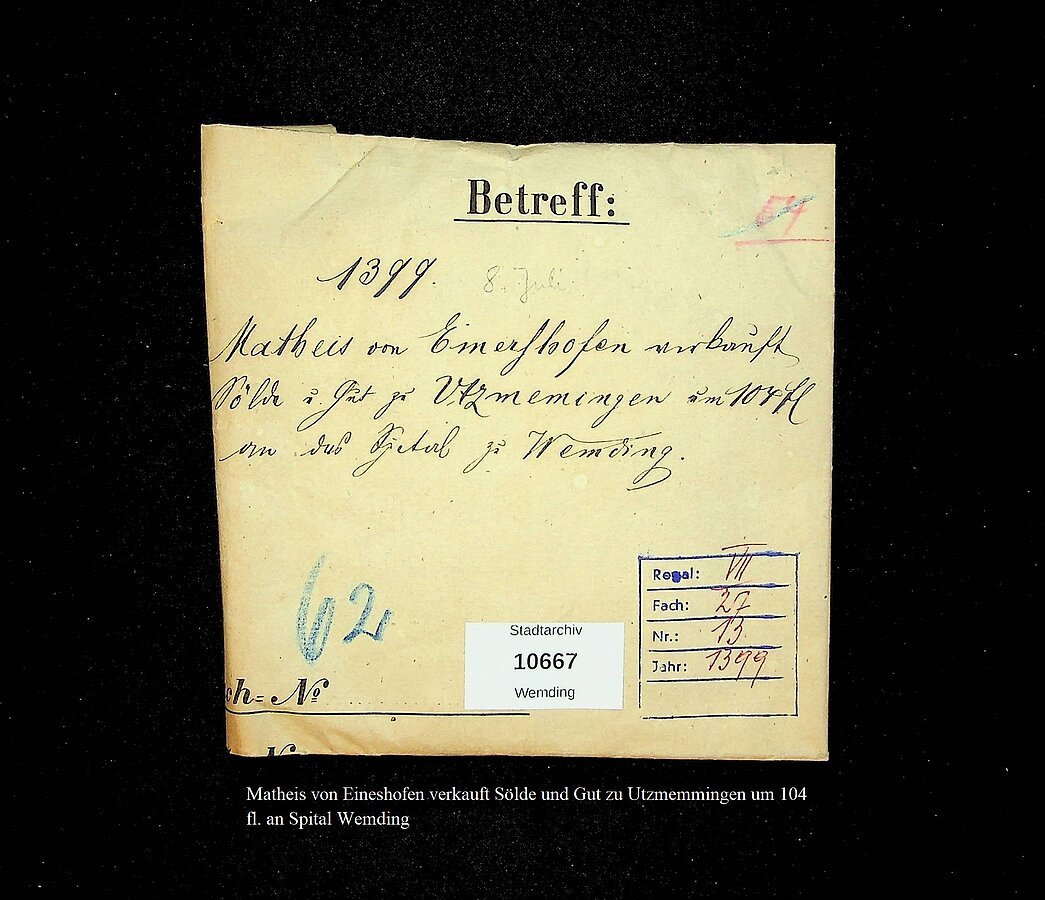 Betreff:
64
1399. 8. Juli
Matheis von Einershofen verkauft
Sölde u. Gut zu Utzmemingen um 104 fl
an das Spital zu Wemding.
62
Stadtarchiv
10667
Wemding
Regal: VII
Fach: 27
Nr.: 13
Jahr: 1399
ch= No
No
Matheis von Eineshofen verkauft Sölde und Gut zu Utzmemmingen um 104
fl. an Spital Wemding